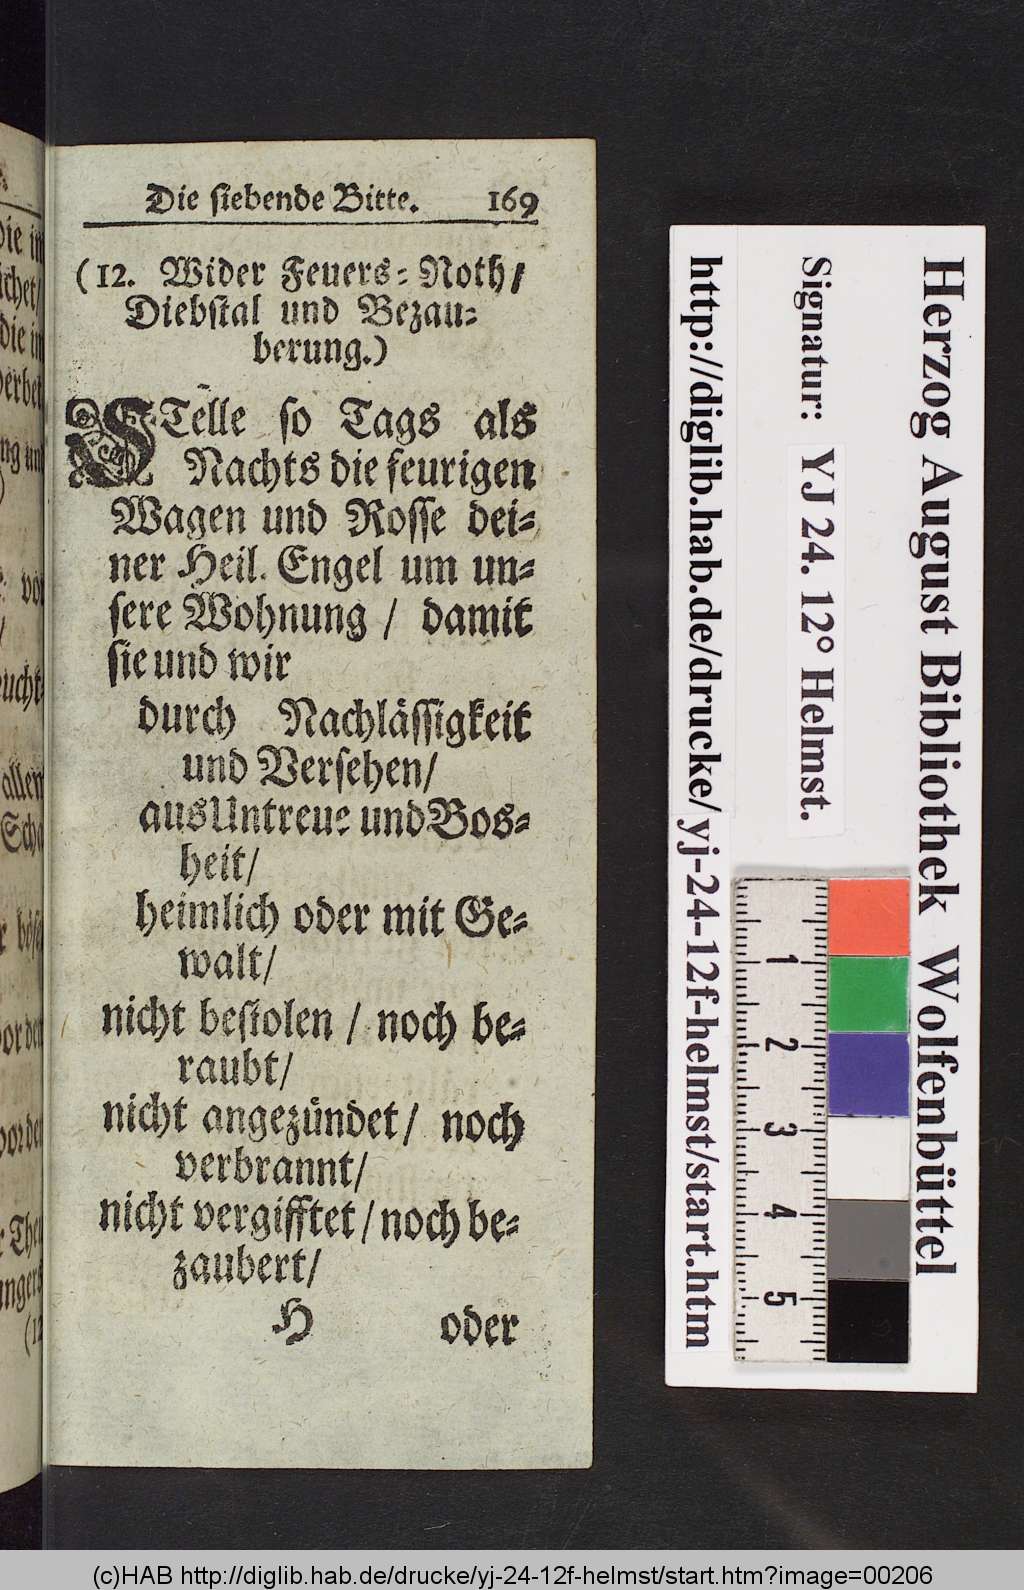 Die siebende Bitte. 169
(12. Wider Feuers=Noth/
Diebstal und Bezau=
berung.)
STelle so Tags als
Nachts die feurigen
Wagen und Rosse dei=
ner Heil. Engel um un=
sere Wohnung / damit
sie und wir
durch Nachlässigkeit
und Versehen/
aus Untreue und Bos=
heit/
heimlich oder mit Ge=
walt/
nicht bestolen / noch be=
raubt/
nicht angezündet/ noch
verbrannt/
nicht vergifftet / noch be=
zaubert/
H oder
die in
die in
ng und
vor
allen
vor den
vor den
(12
Herzog August Bibliothek Wolfenbüttel
Signatur: YJ 24. 12° Helmst.
http://diglib.hab.de/drucke/yj-24-12f-helmst/start.htm
1
2
3
4
5
(c)HAB http://diglib.hab.de/drucke/yj-24-12f-helmst/start.htm?image=00206